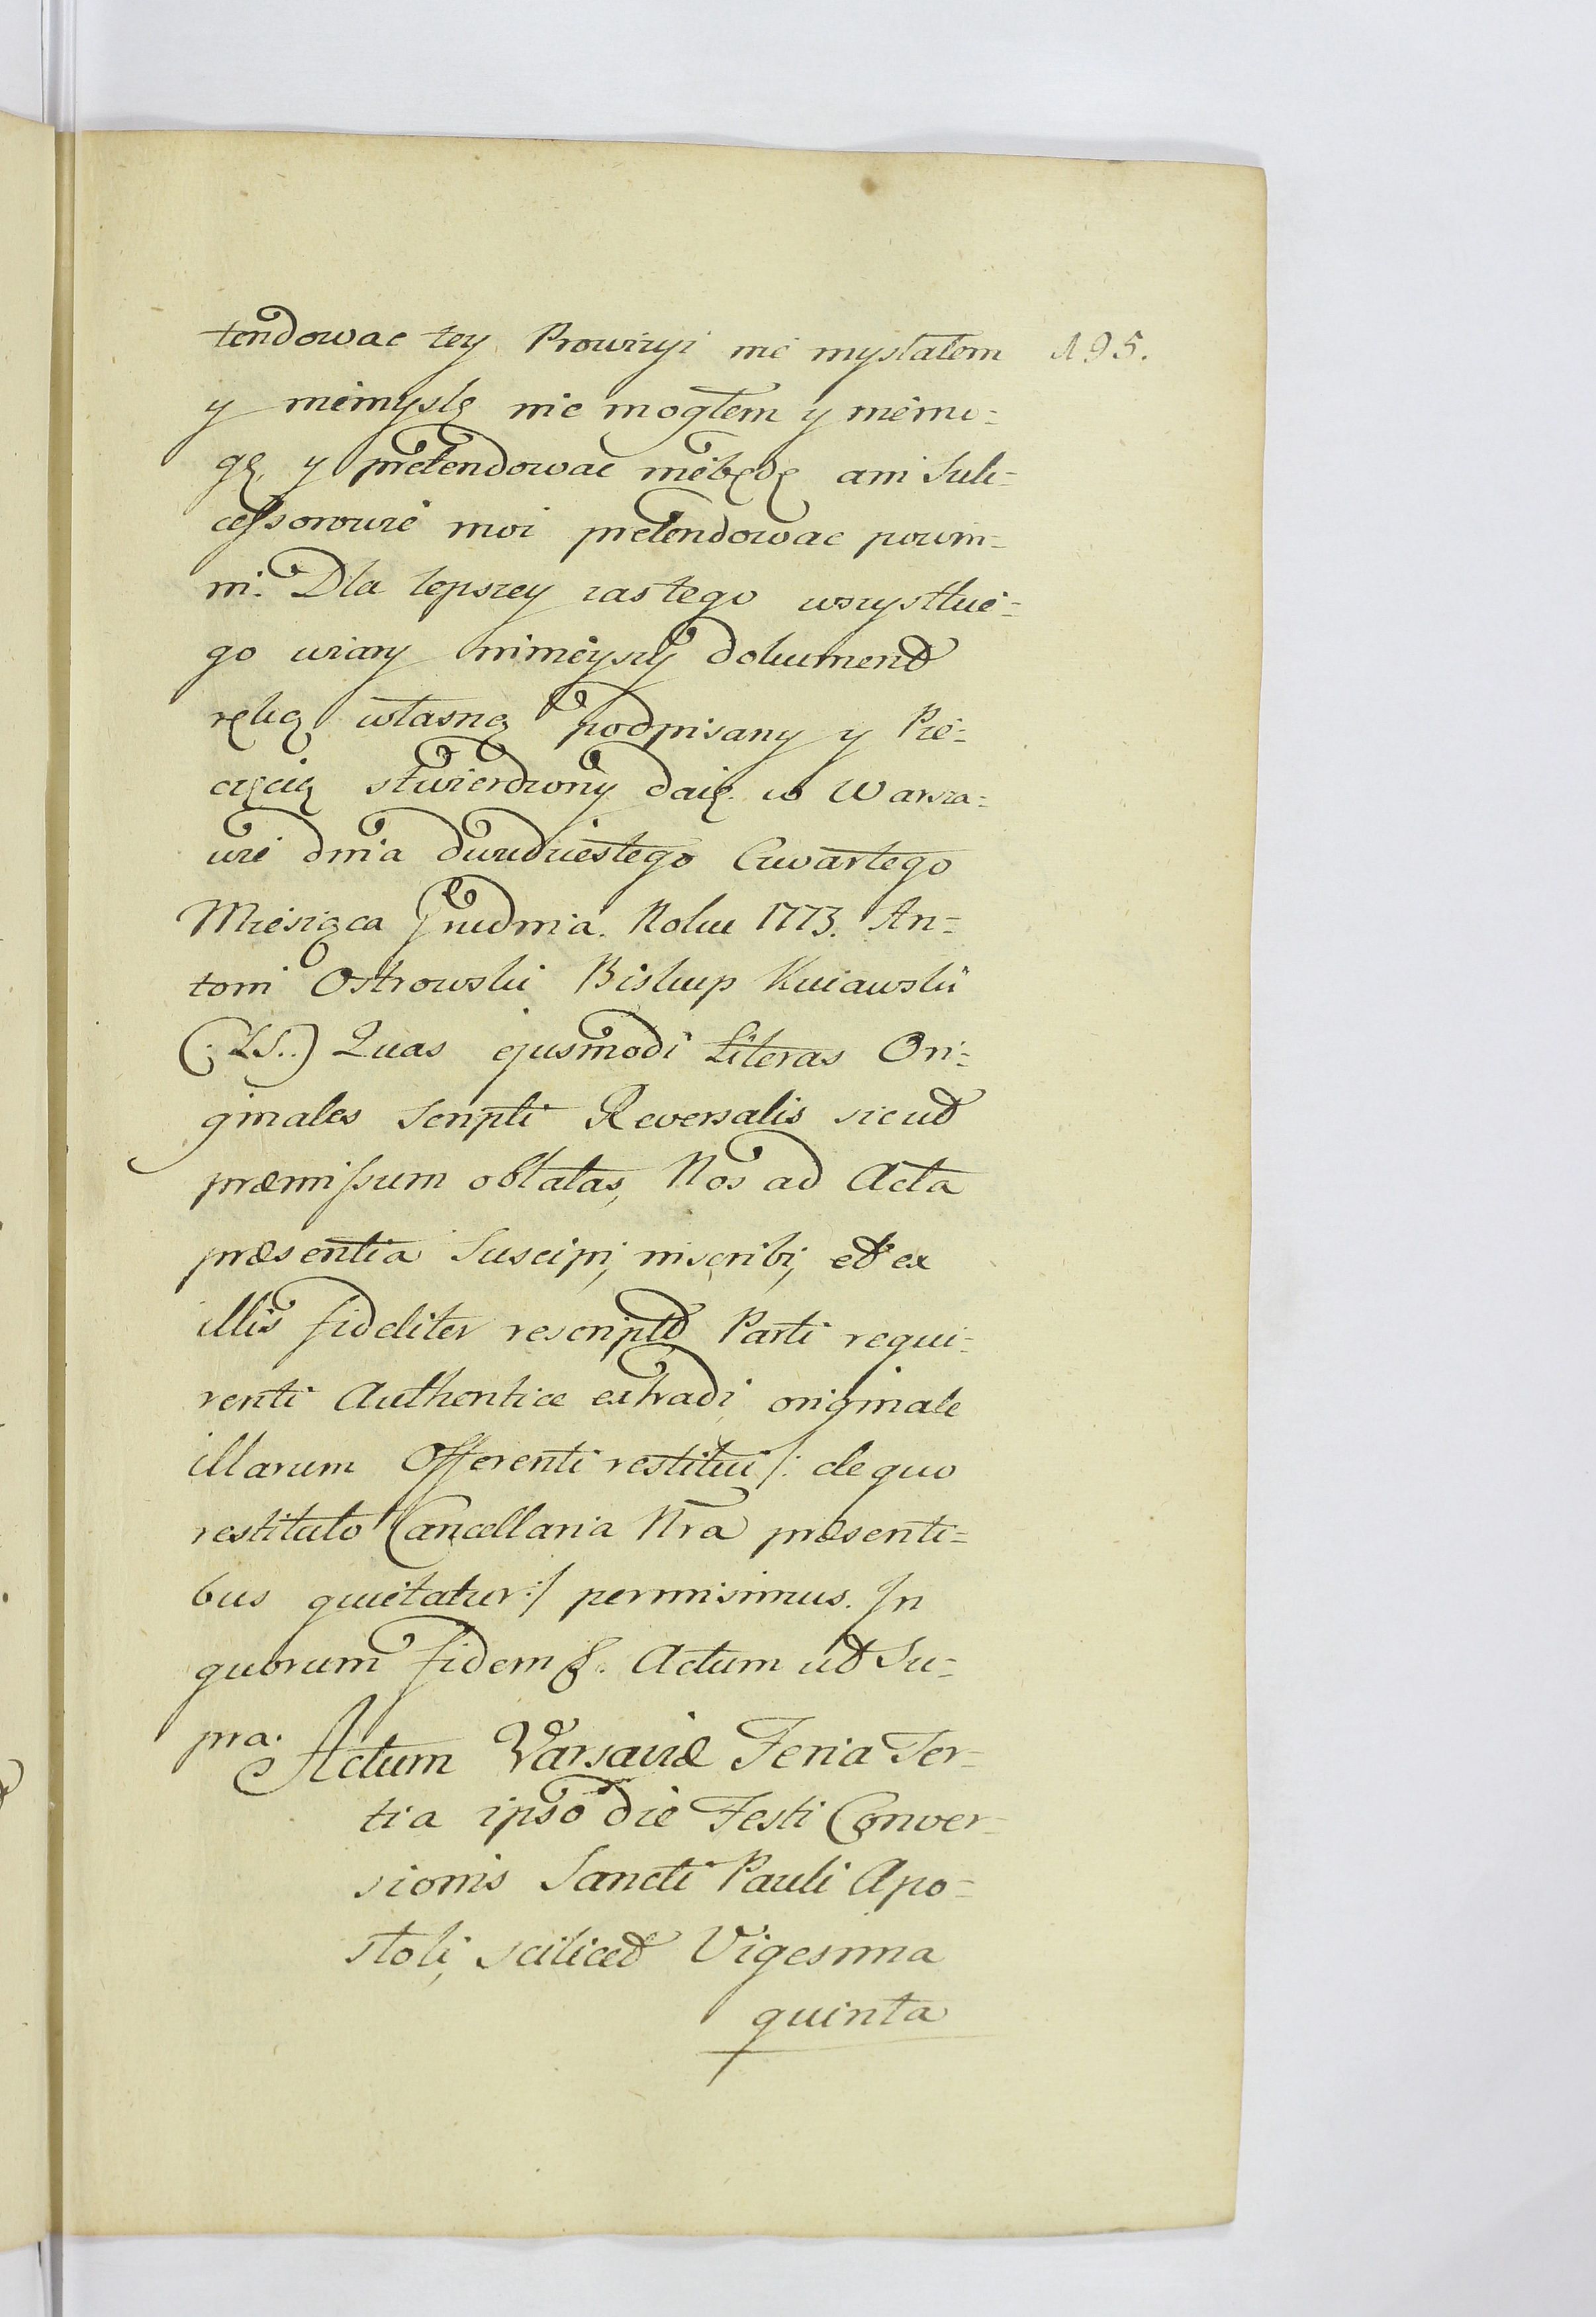 tendowac tey Prowizyi nie myslałem 195.
y niemyslę nie mogłem y niemo=
gę, y pretendować niebędę ani Suk=
cessorowie moi pretendowac powin=
ni. Dla lepszey zas tego wszystkie=
go wiary ninieyszy dokument
ręką własną podpisany y Pie=
częcią stwierdzony daię. w Warsza=
wie dnia dwudziestego Czwartego
Miesiąca Grudnia. Roku 1773. An=
toni Ostrowski Biskup Kuiawski
(: LS..) Quas ejusmodi Literas Ori=
ginales Scripti Reversalis sicut
præmissum oblatas, Nos ad Acta
præsentia Suscipi, inscribi, et ex
illis fideliter rescriptas Parti requi=
renti Authentice extradi, originale
illarum Offerenti restitui /: de quo
restituto Cancellaria Nra præsenti=
bus quietatur :/ permisimus. In
quorum fidem &. Actum ut Su=
pra.
Actum Varsaviæ Feria Ter=
tia ipso die Festi Conver=
sionis Sancti Pauli Apo=
stoli, scilicet Vigesima
quinta